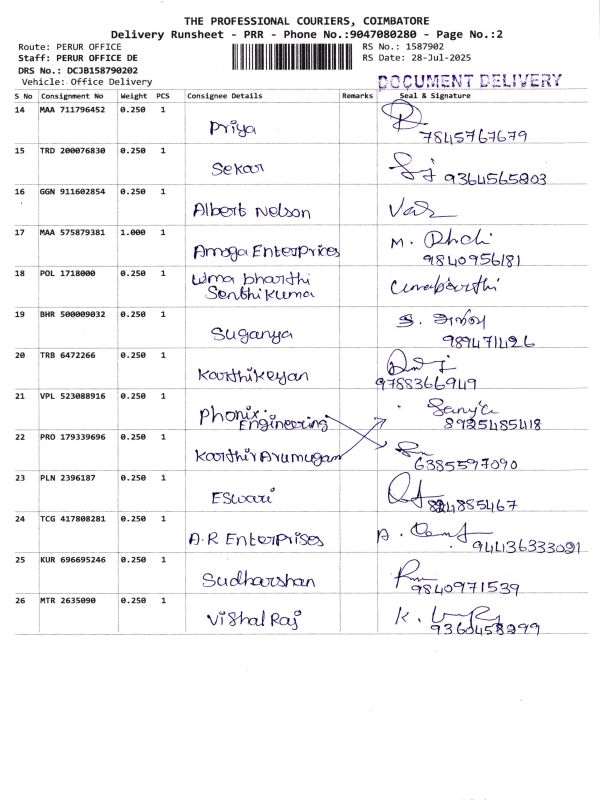 THE PROFESSIONAL COURIERS, COIMBATORE
Delivery Runsheet - PRR - Phone No.:9047080280 - Page No.:2
Route: PERUR OFFICE
Staff: PERUR OFFICE DE
DRS No.: DCJB158790202
Vehicle: Office Delivery
RS No.: 1587902
RS Date: 28-Jul-2025
DOCUMENT DELIVERY
S No Consignment No Weight PCS Consignee Details Remarks Seal & Signature
14 MAA 711796452 0.250 1
Priya
7845767679
15 TRD 200076830 0.250 1
Sekar 9364565803
16 GGN 911602854 0.250 1
Albert Nelson
17 MAA 575879381 1.000 1
Amoga Enterprices
9840956181
18 POL 1718000 0.250 1
uma bharthi
Senthikuma
19 BHR 500009032 0.250 1
Suganya
989471426
20 TRB 6472266 0.250 1
Karthikeyan
9788366949
21 VPL 523088916 0.250 1
Phonix
Engineering
8925485418
22 PRO 179339696 0.250 1
Karthir Arumugan
6385597090
23 PLN 2396187 0.250 1
Eswari
24 TCG 417808281 0.250 1
A.R Enterprises
25 KUR 696695246 0.250 1
Sudharshan
9840971539
26 MTR 2635090 0.250 1
Vishal Raj
9360458299